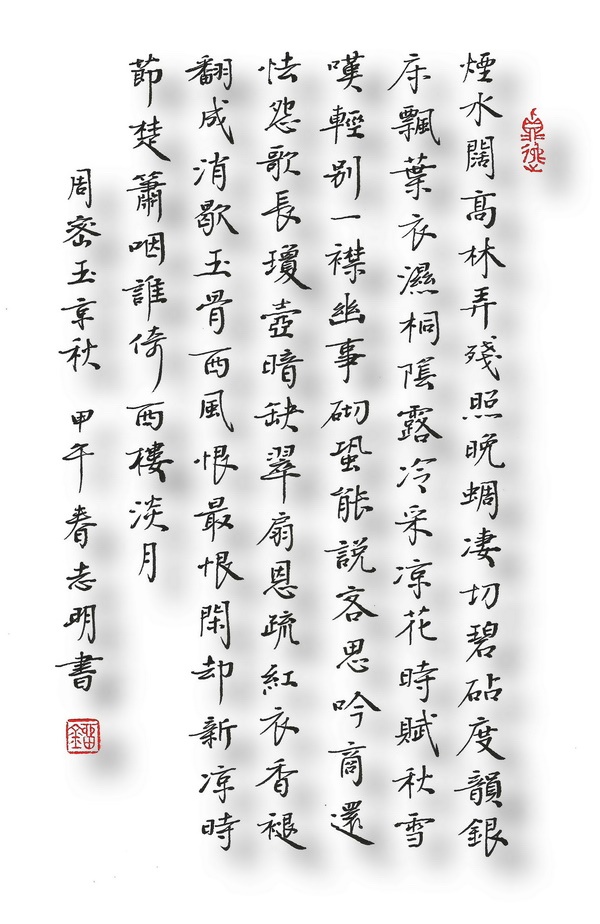 煙水闊高林弄殘照晚蜩凄切碧砧度韻銀
床飄葉衣濕桐陰露冷采凉花時賦秋雪
嘆輕别一襟幽事砌蛩能說客思吟商還
怯怨歌長瓊壺暗缺翠扇恩疏紅衣香褪
翻成消歇玉骨西風恨最恨閑却新凉時
節楚簫咽誰倚西樓淡月
周密玉京秋 甲午春志明書